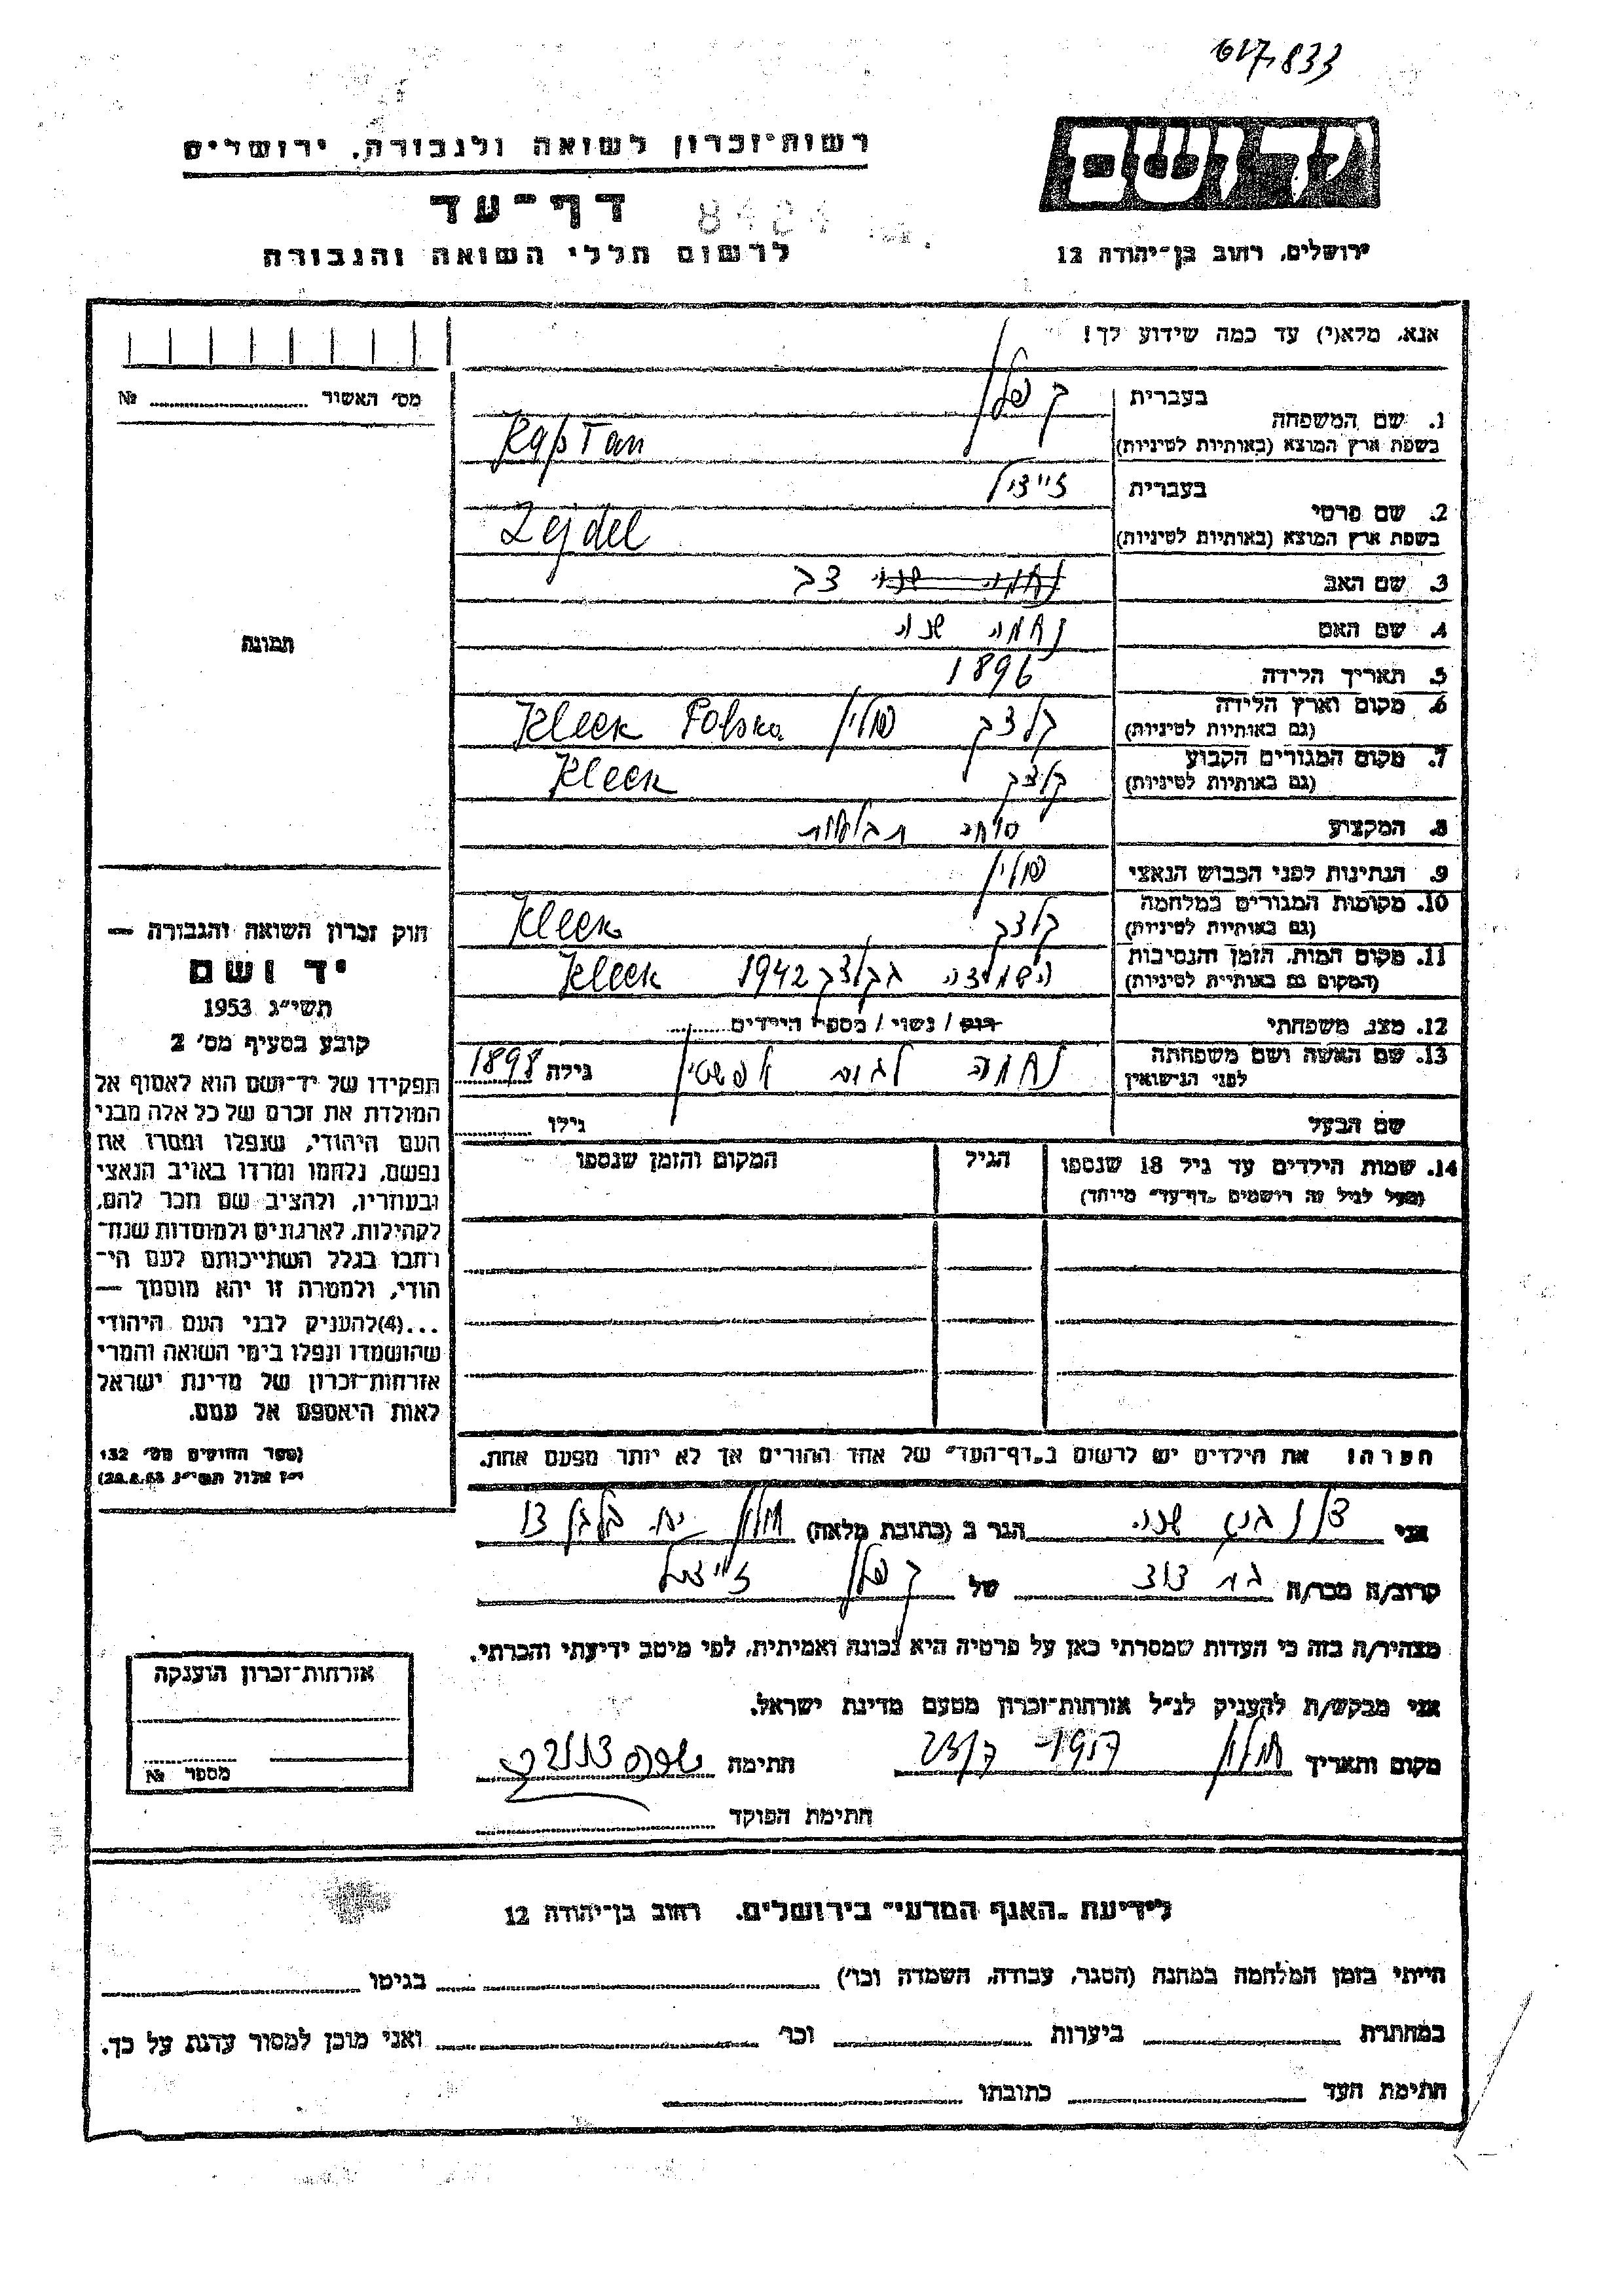 617,833
רשות־זכרון לשואה ולגבורה, ירושלים
דף־עד
8424
לרשום חללי השואה והגבורה
ידושם
ירושלים, רחוב בן־יהודה 12
אנא, מלא(י) עד כמה שידוע לך!
מס׳ האשור № 
1. שם המשפחה
בעברית קפלן
בשפת ארץ המוצא (באותיות לטיניות) Kaplan
2. שם פרטי
בעברית זיידל
בשפת ארץ המוצא (באותיות לטיניות) Zejdel
3. שם האב
4. שם האם נחמה
5. תאריך הלידה 1896
6. מקום וארץ הלידה
(גם באותיות לטיניות) קלצק פולין Kleck Polska
7. מקום המגורים הקבוע
(גם באותיות לטיניות) קלצק Kleck
8. המקצוע סוחר תבואות
9. הנתינות לפני הכבוש הנאצי פולין
10. מקומות המגורים במלחמה
(גם באותיות לטיניות) קלצק Kleck
11. מקום המות, הזמן והנסיבות
(המקום גם באותיות לטיניות) בקלצק 1942 Kleck
12. מצב משפחתי רווק / נשוי / מספר הילדים
13. שם האשה ושם משפחתה
לפני הנישואין נחמה לבית אפשטיין גילה 1898
שם הבעל גילו
14. שמות הילדים עד גיל 18 שנספו
(מעל לגיל זה רושמים „דף־עד״ מיוחד)
הגיל
המקום והזמן שנספו
הערה! את הילדים יש לרשום ב„דף־העד״ של אחד ההורים אך לא יותר מפעם אחת.
תמונה
חוק זכרון השואה והגבורה —
יד ושם
תשי״ג 1953
קובע בסעיף מס׳ 2
תפקידו של יד־ושם הוא לאסוף אל
המולדת את זכרם של כל אלה מבני
העם היהודי, שנפלו ומסרו את
נפשם, נלחמו ומרדו באויב הנאצי
ובעוזריו, ולהציב שם וזכר להם,
לקהילות, לארגונים ולמוסדות שנח־
רבו בגלל השתייכותם לעם הי־
הודי, ולמטרה זו יהא מוסמך —
...(4)להעניק לבני העם היהודי
שהושמדו ונפלו בימי השואה והמרי
אזרחות־זכרון של מדינת ישראל
לאות היאספם אל עמם.
(ספר החוקים מס׳ 132
י״ז אלול תשי״ג 28.8.53)
אני הגר ב (כתובת מלאה) חולון
קרוב/ה מכר/ה בת דוד של קפלן זיידל
מצהיר/ה בזה כי העדות שמסרתי כאן על פרטיה היא נכונה ואמיתית, לפי מיטב ידיעתי והכרתי.
אני מבקש/ת להעניק לנ״ל אזרחות־זכרון מטעם מדינת ישראל.
מקום ותאריך חולון חתימה
חתימת הפוקד
אזרחות־זכרון הוענקה
מספר №
לידיעת „האגף המדעי״ בירושלים, רחוב בן־יהודה 12
הייתי בזמן המלחמה במחנה (הסגר, עבודה, השמדה וכו׳) בגיטו
במחתרת ביערות וכו׳ ואני מוכן למסור עדות על כך.
חתימת העד כתובתו